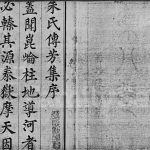 朱氏傳芳集序
蓋聞崑崙柱地導河者
必轃其源泰嶽摩天因